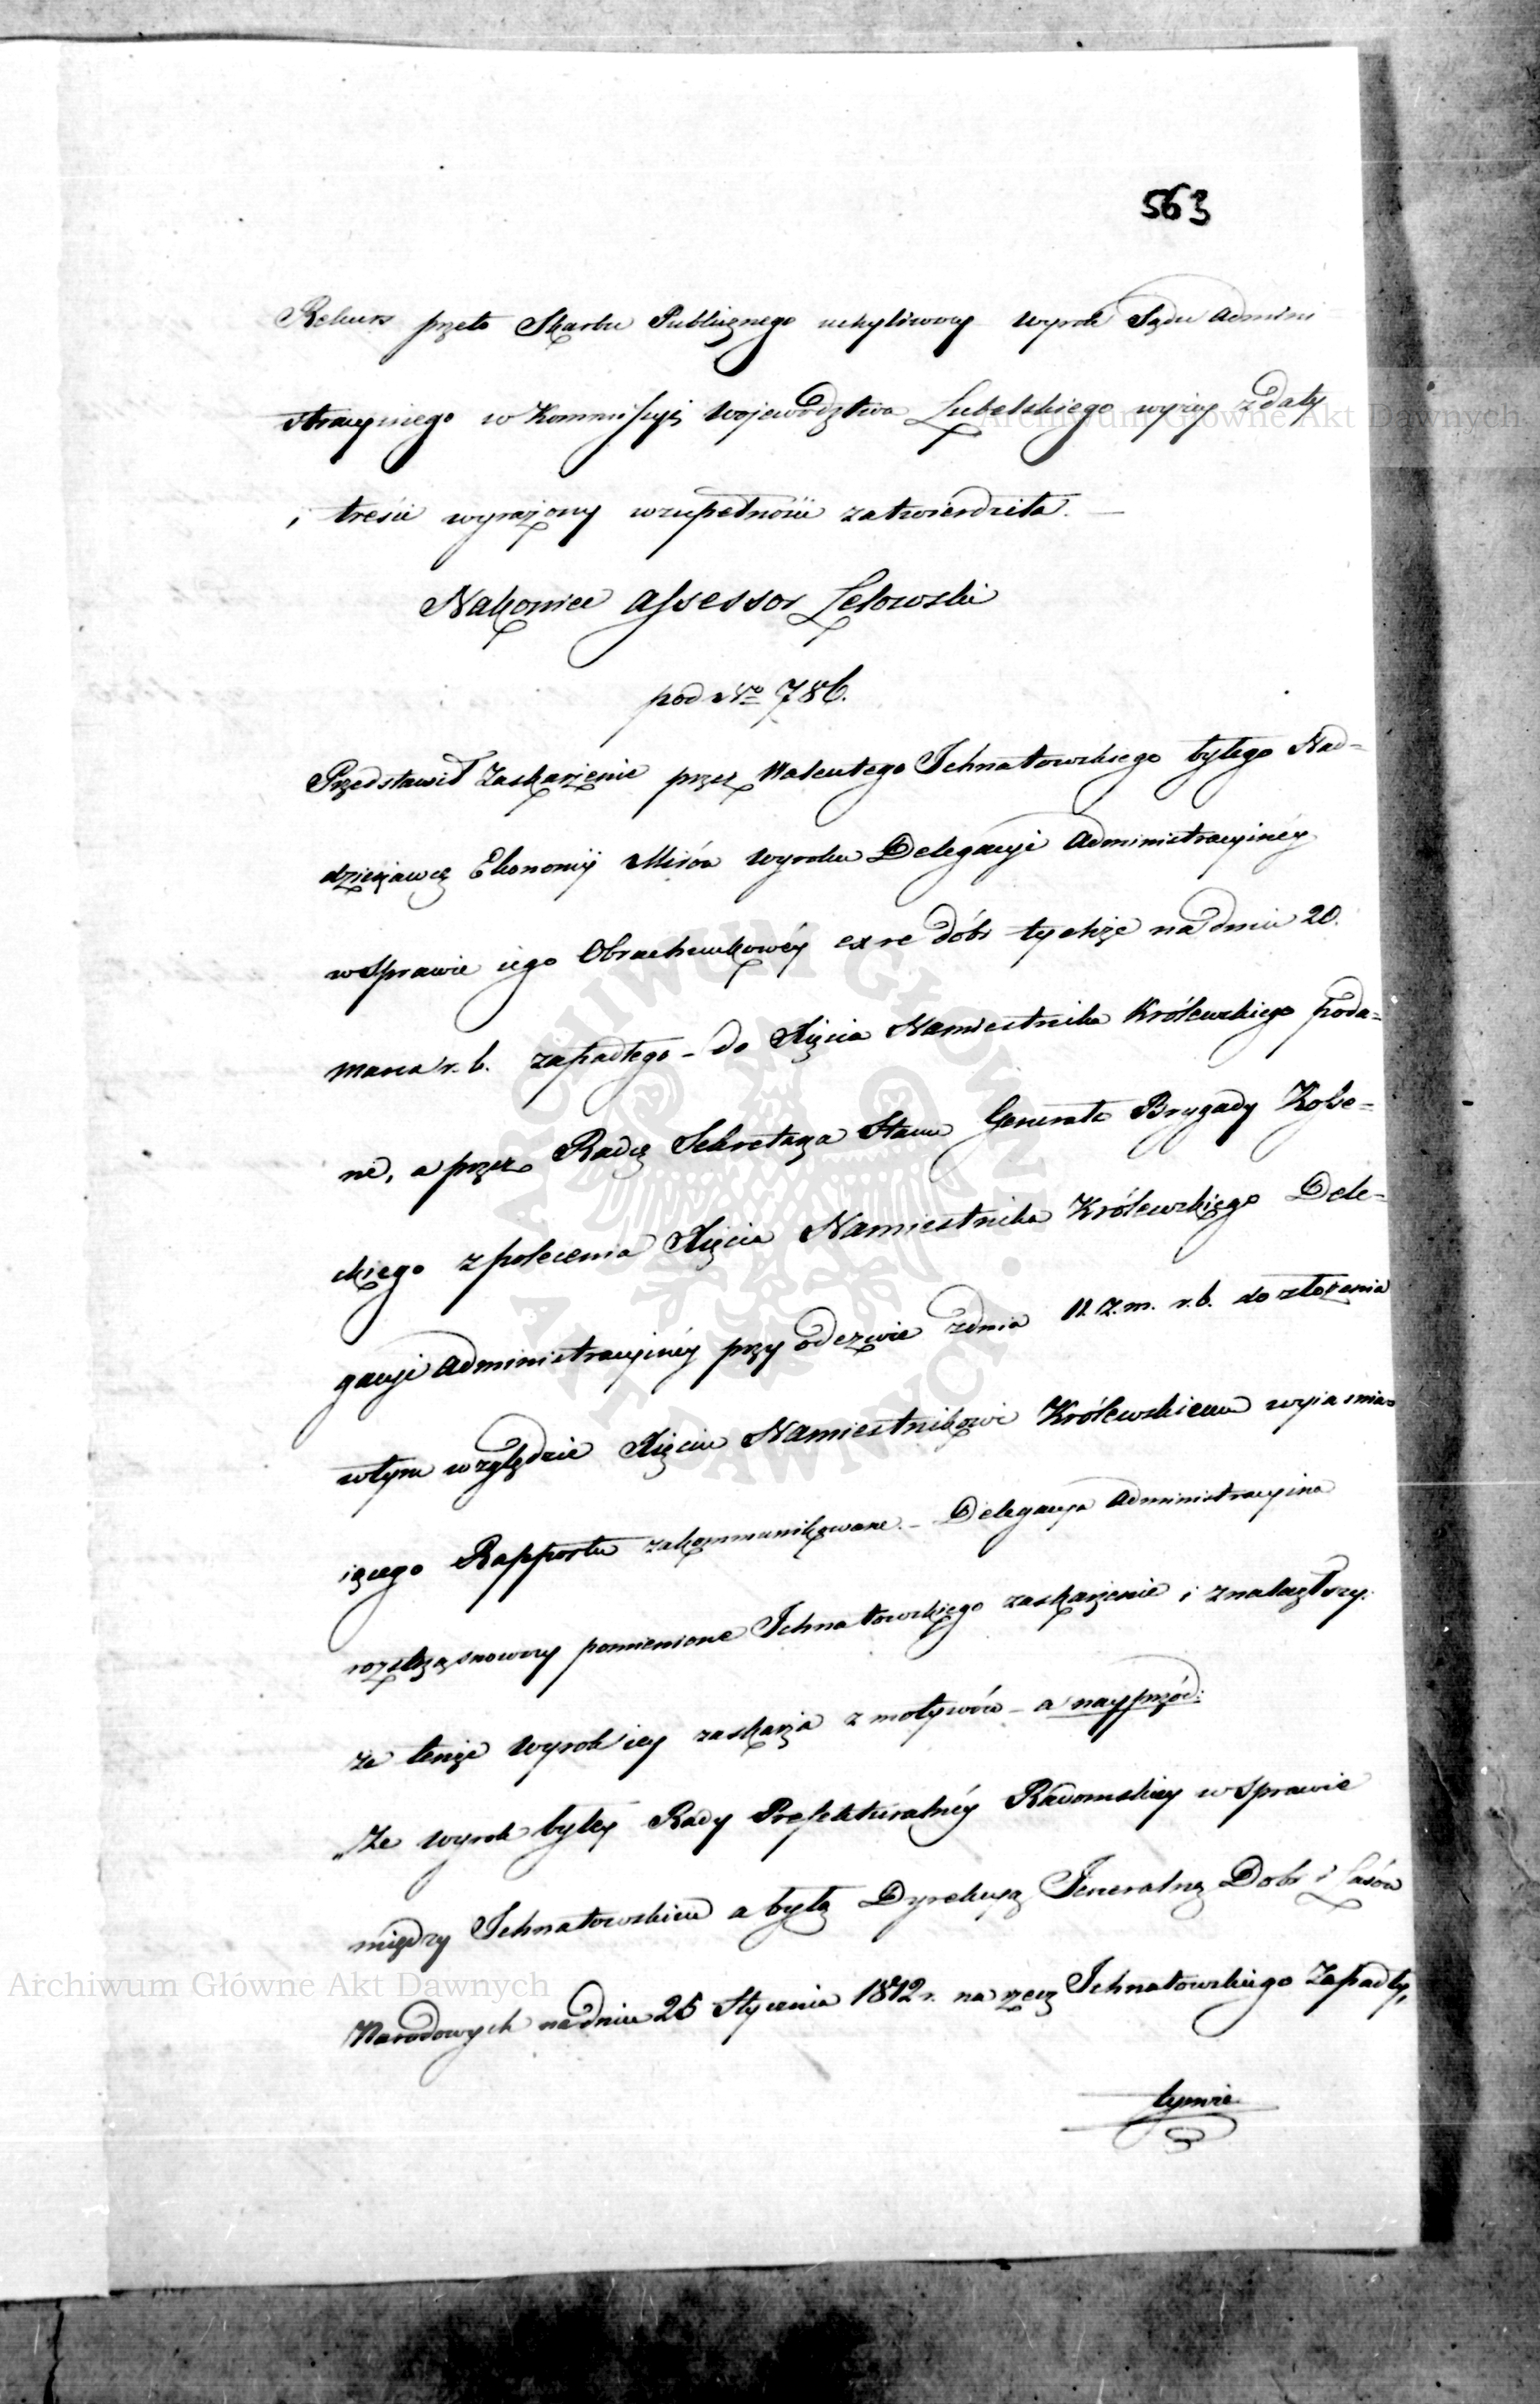 563
Rekurs przeto Skarbu Publicznego uchyliwszy wyrok Sądu Admini
stracyinego w Kommissyi Województwa Lubelskiego wyżey z daty
i treści wyrażony w zupełności zatwierdziła. —
Nakoniec Assessor Lełowski
pod No 786.
Przedstawił Zaskarżenie przez Walentego Ichnatowskiego byłego Nad=
dzierżawcę Ekonomij Mirów wyroku Delegacyi Administracyinéy
w Sprawie iego Obrachunkowéy ex re dóbr tychże na dniu 20.
marca r. b. zapadłego – do Xięcia Namiestnika Królewskiego poda=
ne, a przez Radcę Sekretarza Stanu Generała Brygady Kosse=
ckiego z polecenia Xięcia Namiestnika Królewskiego Dele=
gacyi Administracyinéy przy odezwie z dnia 11. z. m. r. b. do złożenia
w tym względzie Xięciu Namiestnikowi Królewskiemu wyiaśnia=
iącego Rapportu zakommunikowane. – Delegacya Administracyina
roztrząsnąwszy pomienione Ichnatowskiego zaskarżenie i znalazłszy:
że tenże wyrok iey zaskarża z motywów – a nayprzód:
„Że wyrok byłey Rady Prefekturalnéy Radomskiey w Sprawie
między Ichnatowskim a byłą Dyrekcyą Jeneralną Dobr i Lasów
Narodowych na dniu 25 Stycznia 1812 r. na rzecz Ichnatowskiego Zapadły,